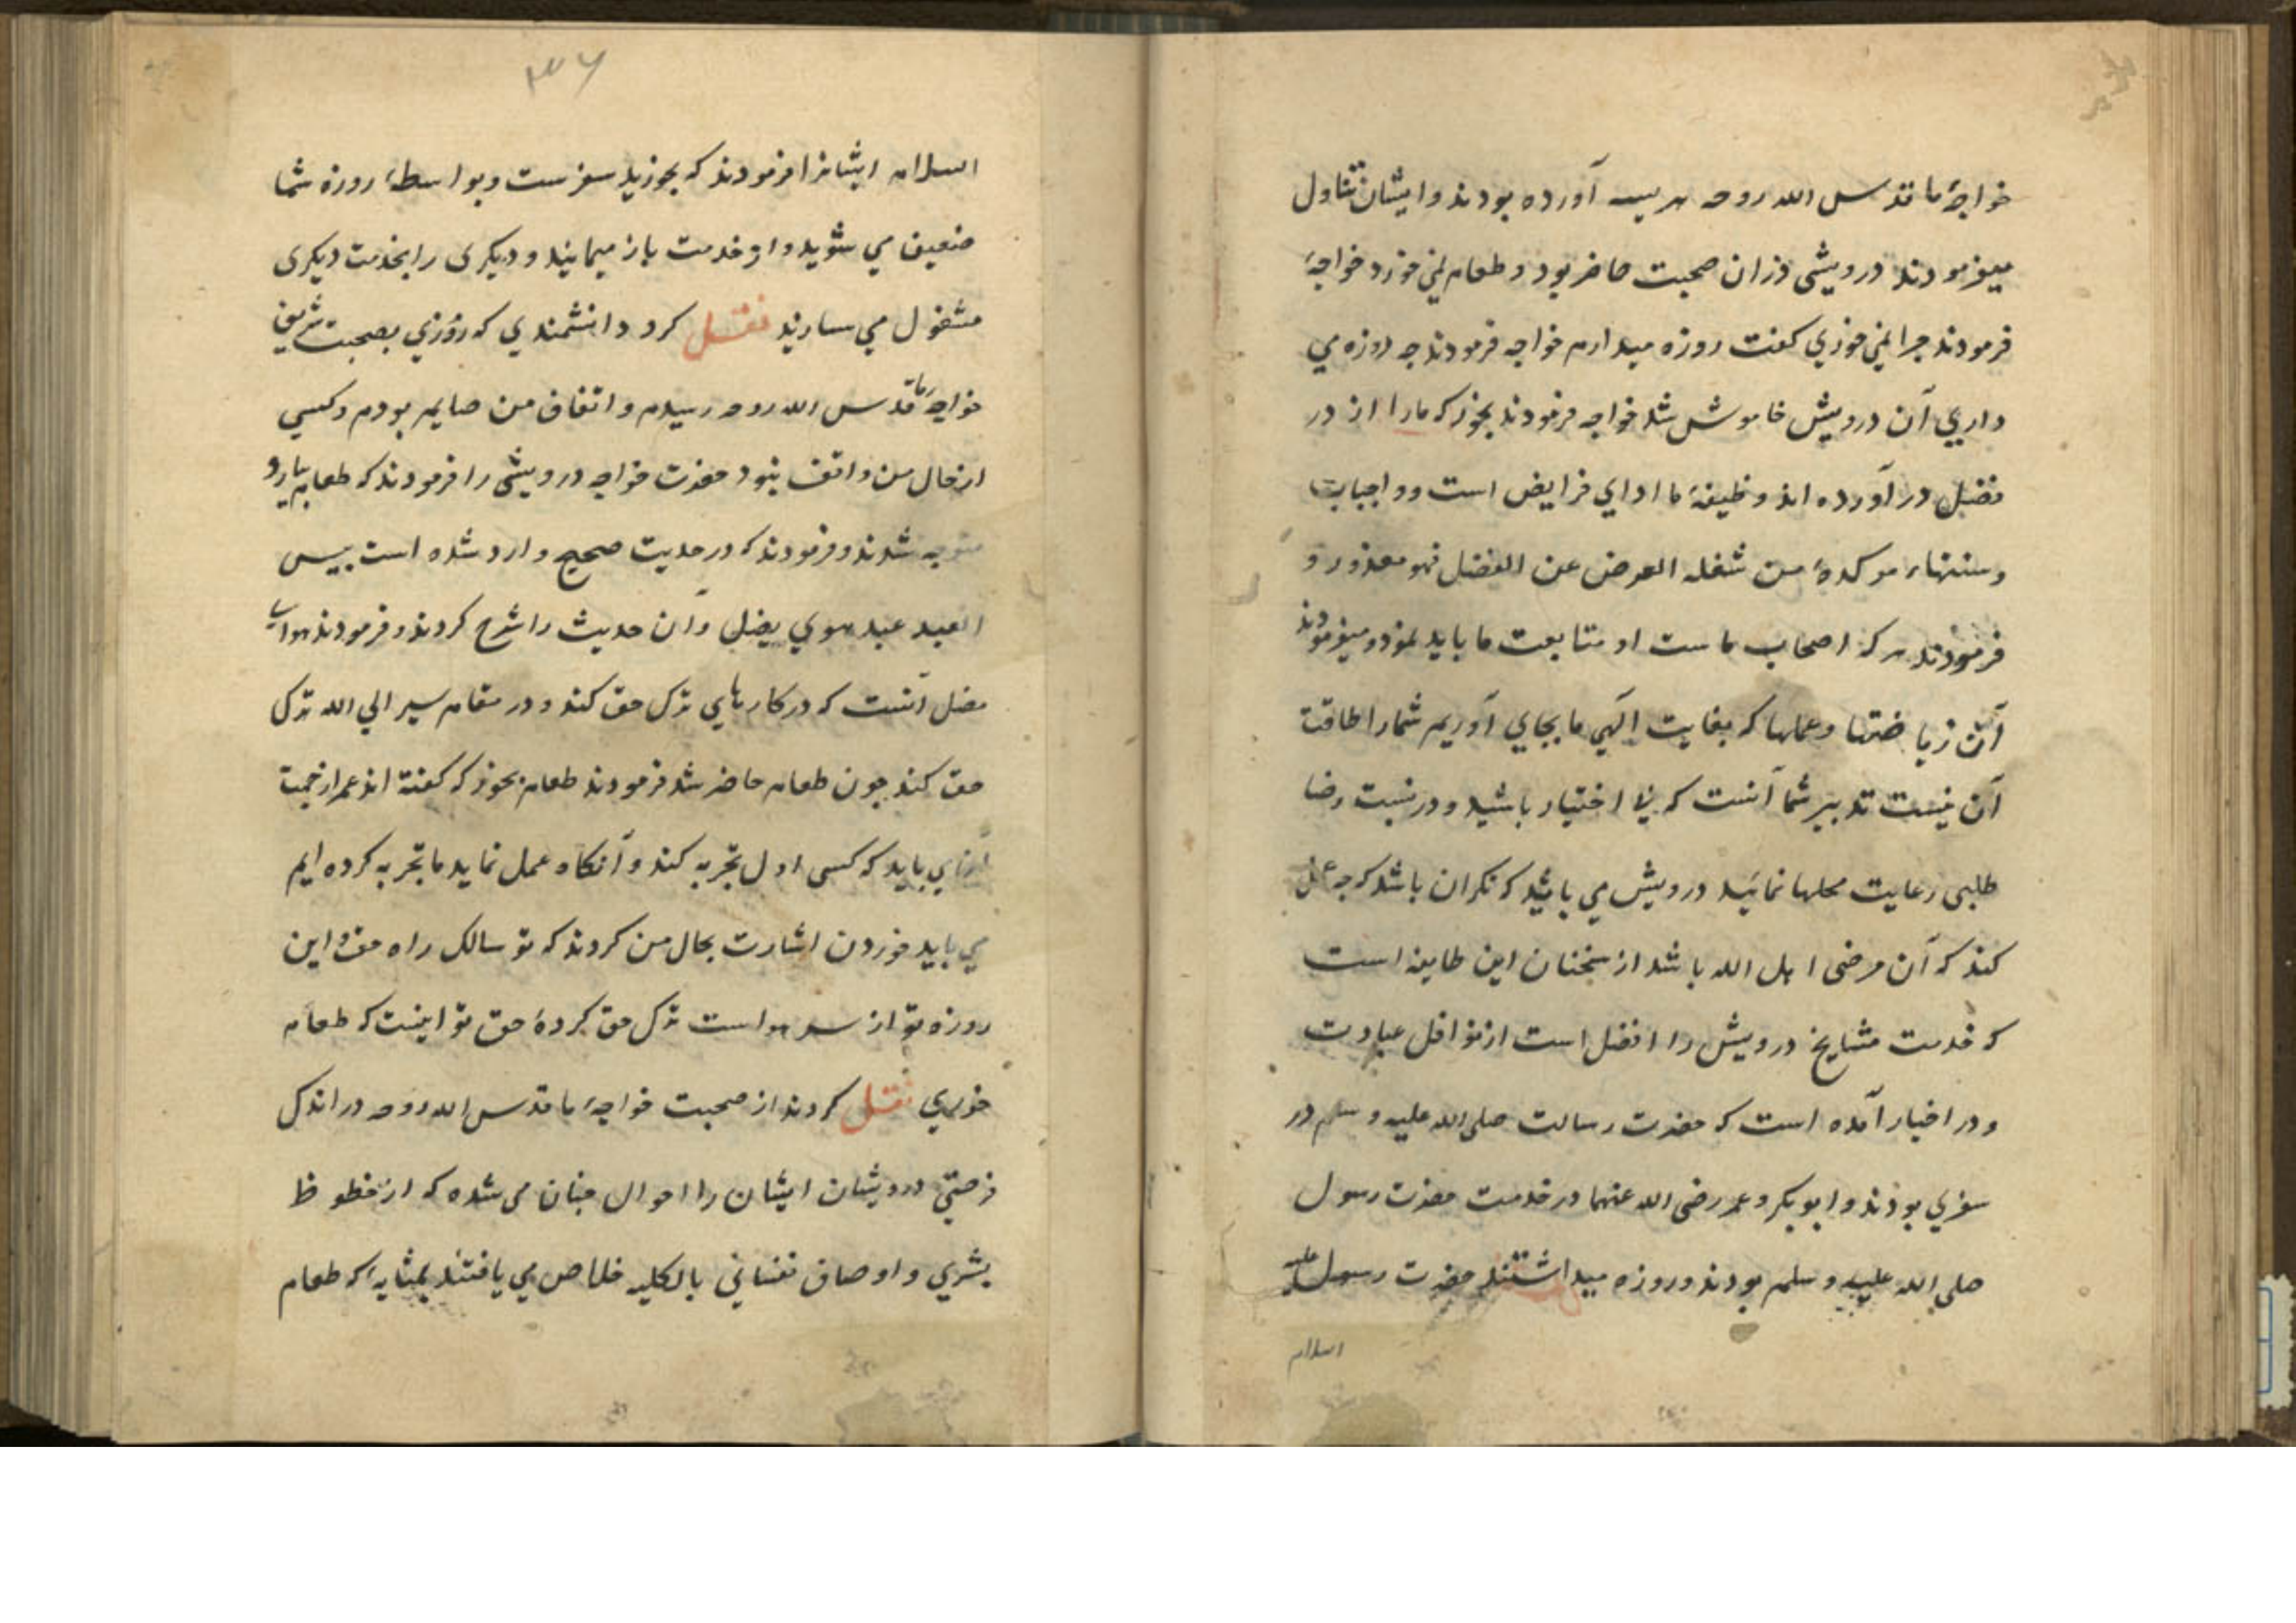 خواجهٔ ما قدس الله روحه هریسه آورده بودند و ایشان تناول
میفرمودند درویشی دران صحبت حاضر بود و طعام نمی خورد خواجهٔ
فرمودند چرا نمی خوری کفت روزه میدارم خواجه فرمودند چه روزه می
داری آن درویش خاموش شد خواجه فرمودند بخور که ما را از در
فضل در آورده اند وظیفهٔ ما ادای فرایض است و واجبات
و سنتهاء موکدهٔ من شغله الفرض عن الفضل فهو معذور و
فرمودند هر که اصحاب ماست او متابعت ما باید نمود و میفرمودند
آن ریاضتها و عملها که بعنایت الهی ما بجای آوریم شما را طاقت
آن نیست تدبیر شما آنست که بی اختیار باشید و در نسبت رضا
طلبی رعایت محلها نمائید درویش می باید که نکران باشد که چه عمل
کند که آن مرضی اهل الله باشد از سخنان این طایفه است
که خدمت مشایخ درویش را افضل است از نوافل عبادت
و در اخبار آمده است که حضرت رسالت صلی الله علیه و سلم در
سفری بودند و ابوبکر و عمر رضی الله عنهما در خدمت حضرت رسول
صلی الله علیه و سلم بودند و روزه میداشتند حضرت رسول علیه
السلام
۳۶
السلام ایشانرا فرمودند که بخورید سفرست و بواسطهٔ روزه شما
ضعیف می شوید و از خدمت باز میمانید و دیکری را بخدمت دیکری
مشغول می سازید نقل کرد دانشمندی که روزی بصحبت شریف
خواجهٔ ما قدس الله روحه رسیدم و اتفاق من صایم بودم و کسی
از حال من واقف نبود حضرت خواجه درویشی را فرمودند که طعام بیارد و
متوجه شدند و فرمودند که در حدیث صحیح وارد شده است بیس
العبد عبد هوی یضل و آن حدیث را شرح کردند و فرمودند هوای
مضل آنست که در کارهای ترک حق کند و در مقام سیر الی الله ترک
حق کند چون طعام حاضر شد فرمودند طعام بخور که کفته اند عمر از جهت
می باید که کسی اول تجربه کند و آنکاه عمل نماید ما تجربه کرده ایم
می باید خوردن اشارت بحال من کردند که تو سالک راه حق و این
روزه تو از سر هواست ترک حق کردهٔ حق تو اینست که طعام
خوری نقل کردند از صحبت خواجهٔ ما قدس الله روحه در اندک
فرصتی درویشان ایشان را احوال چنان می شده که از حظوظ
بشری و اوصاف نفسانی بالکلیه خلاص می یافتند بمثابهٔ که طعام